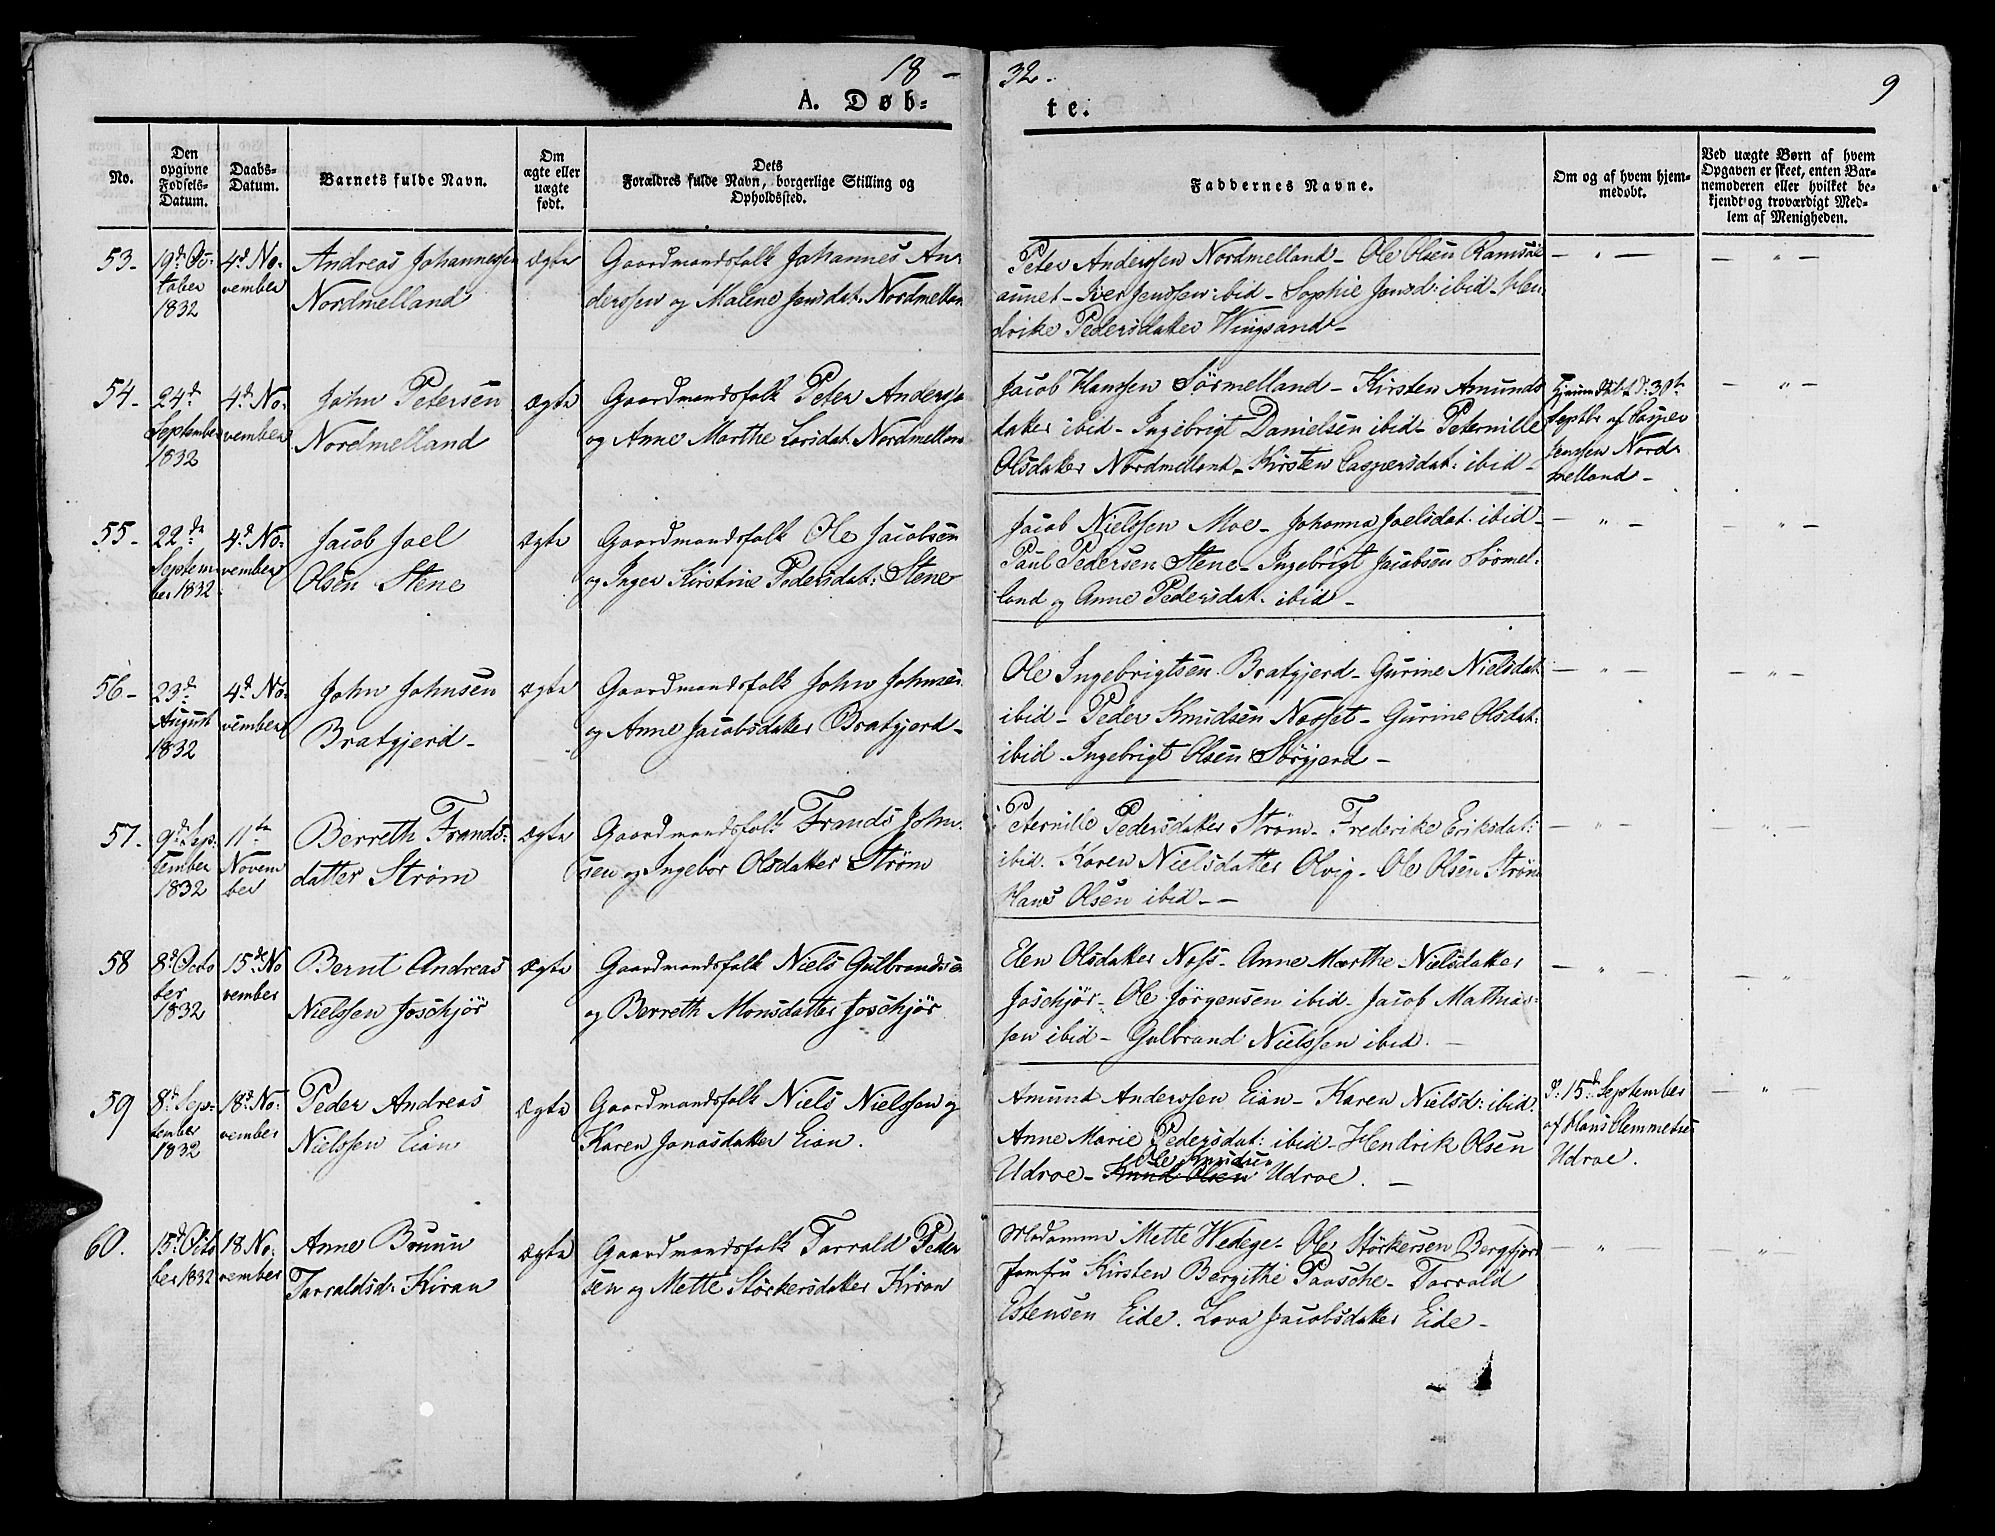 18 - 32.
9
A. Døb-
te.
No.
Den opgivne Fødsels-Datum.
Daabs-Datum.
Barnets fulde Navn.
Om ægte eller uægte født.
Dets Forældres fulde Navn, borgerlige Stilling og Opholdssted.
Faddernes Navne.
Om og af hvem hjem-medøbt.
Ved uægte Børn af hvem Opgaven er skeet, enten Bar-nemoderen eller hvilket be-kjendt og troværdigt Med-lem af Menigheden.
53.
19d: Oc-
tober
1832
4d No-
vember
Andreas Johannessen
Nordmelland
Ægte
Gaardmandsfolk Johannes An-
derssen og Malene Jensdat. Nordmellan
Peter Anderssen Nordmelland - Ole Olsen Ramsöe
aunet - Iver Jenssen ibid - Sophie Jensd: ibid - Hen
drike Pedersdatter Wingsand -
- " -
- " -
54.
24d
September
1832
4d No-
vember
John Petersen
Nordmelland
Ægte
Gaardmandsfolk Peter Anderse
og Anne Marthe Larsdat. Nordmellan
Jacob Hanssen Sörmelland - Kirsten Amunds
datter ibid - Ingebrigt Danielsen ibid - Peternille
Olsdatter Nordmelland - Kirsten Caspersdat: ibid -
Hjemmedöbt d: 30te
Septbr af Casper
Jenssen Nord
melland -
- " -
55 -
22de
Septem
ber 1832
4d No-
vember
Jacob Joel
Olsen Stene
Ægte
Gaardmandsfolk Ole Jacobsen
og Inger Kirstine Pedersdat: Stene
Jacob Nielssen Moe - Johanna Joelsdat: ibid -
Paul Pedersen Stene - Ingebrigt Jacobsen Sörmel-
land og Anne Pedersdat: ibid -
- " -
- " -
56 -
23d
August
1832
4d No-
vember
John Johnsen
Bratgjerd -
Ægte
Gaardmandsfolk John Johnsen
og Anne Jacobsdatter Bratgjerd -
Ole Ingebrigtsen Bratgjerd - Gurine Nielsdat:
ibid - Peder Knudsen Nesset - Gurine Olsdat:
ibid - Ingebrigt Olsen Sörgjerd -
- " -
- " -
57.
9d Sep-
tember
1832
11te
Novem
ber
Berreth Frands-
datter Strøm
Ægte
Gaardmandsfolk Frands John-
sen og Ingebor Olsdatter Strøm
Peternille Pedersdatter Strøm - Frederike Eriksdat:
ibid. Karen Nielsdatter Olvig - Ole Olsen Strøm
Hans Olsen ibid - -
- " -
- " -
58
8d Octo
ber
1832
15de No
vember
Bernt Andreas
Nielssen Joschjör
Ægte
Gaardmandsfolk Niels Gulbrandsse
og Berreth Monsdatter Joschjör
Elen Olsdatter Næss - Anne Marthe Nielsdatter
Joschjör - Ole Jörgensen ibid - Jacob Mathias-
sen ibid - Gulbrand Nielssen ibid. -
- " -
- " -
59
8d Sep-
tember
1832
18d No-
vember
Peder Andreas
Nielssen Eian
Ægte
Gaardmandsfolk Niels Nielssen og
Karen Jonasdatter Eian.
Amund Anderssen Eian - Karen Nielsd: ibid.
Anne Marie Pedersdat: ibid - Hendrik Olsen
Ole Knudsen
Udroe - Knud Olsen Udroe. -
d: 15d September
af Hans Clemmetsen
Udroe.
- " -
60.
15d Octo
ber 1832
18 No-
vember
Anne Bruun
Tarraldsd: Kiran
Ægte
Gaardmandsfolk Tarrald Peder
sen og Mette Störkersdatter Kiran
Madamme Mette Wedege - Ole Störkersen Bergfjord
Jomfru Kirsten Bergithe Paasche - Tarrald
Estensen Eide. Lova Jacobsdatter Eide -
- " -
- " -